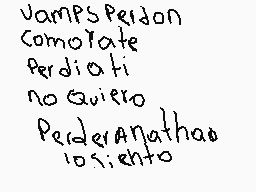 vamps perdon
como Yate
perdi a ti
no quiero
perder A Nathao
lo siento